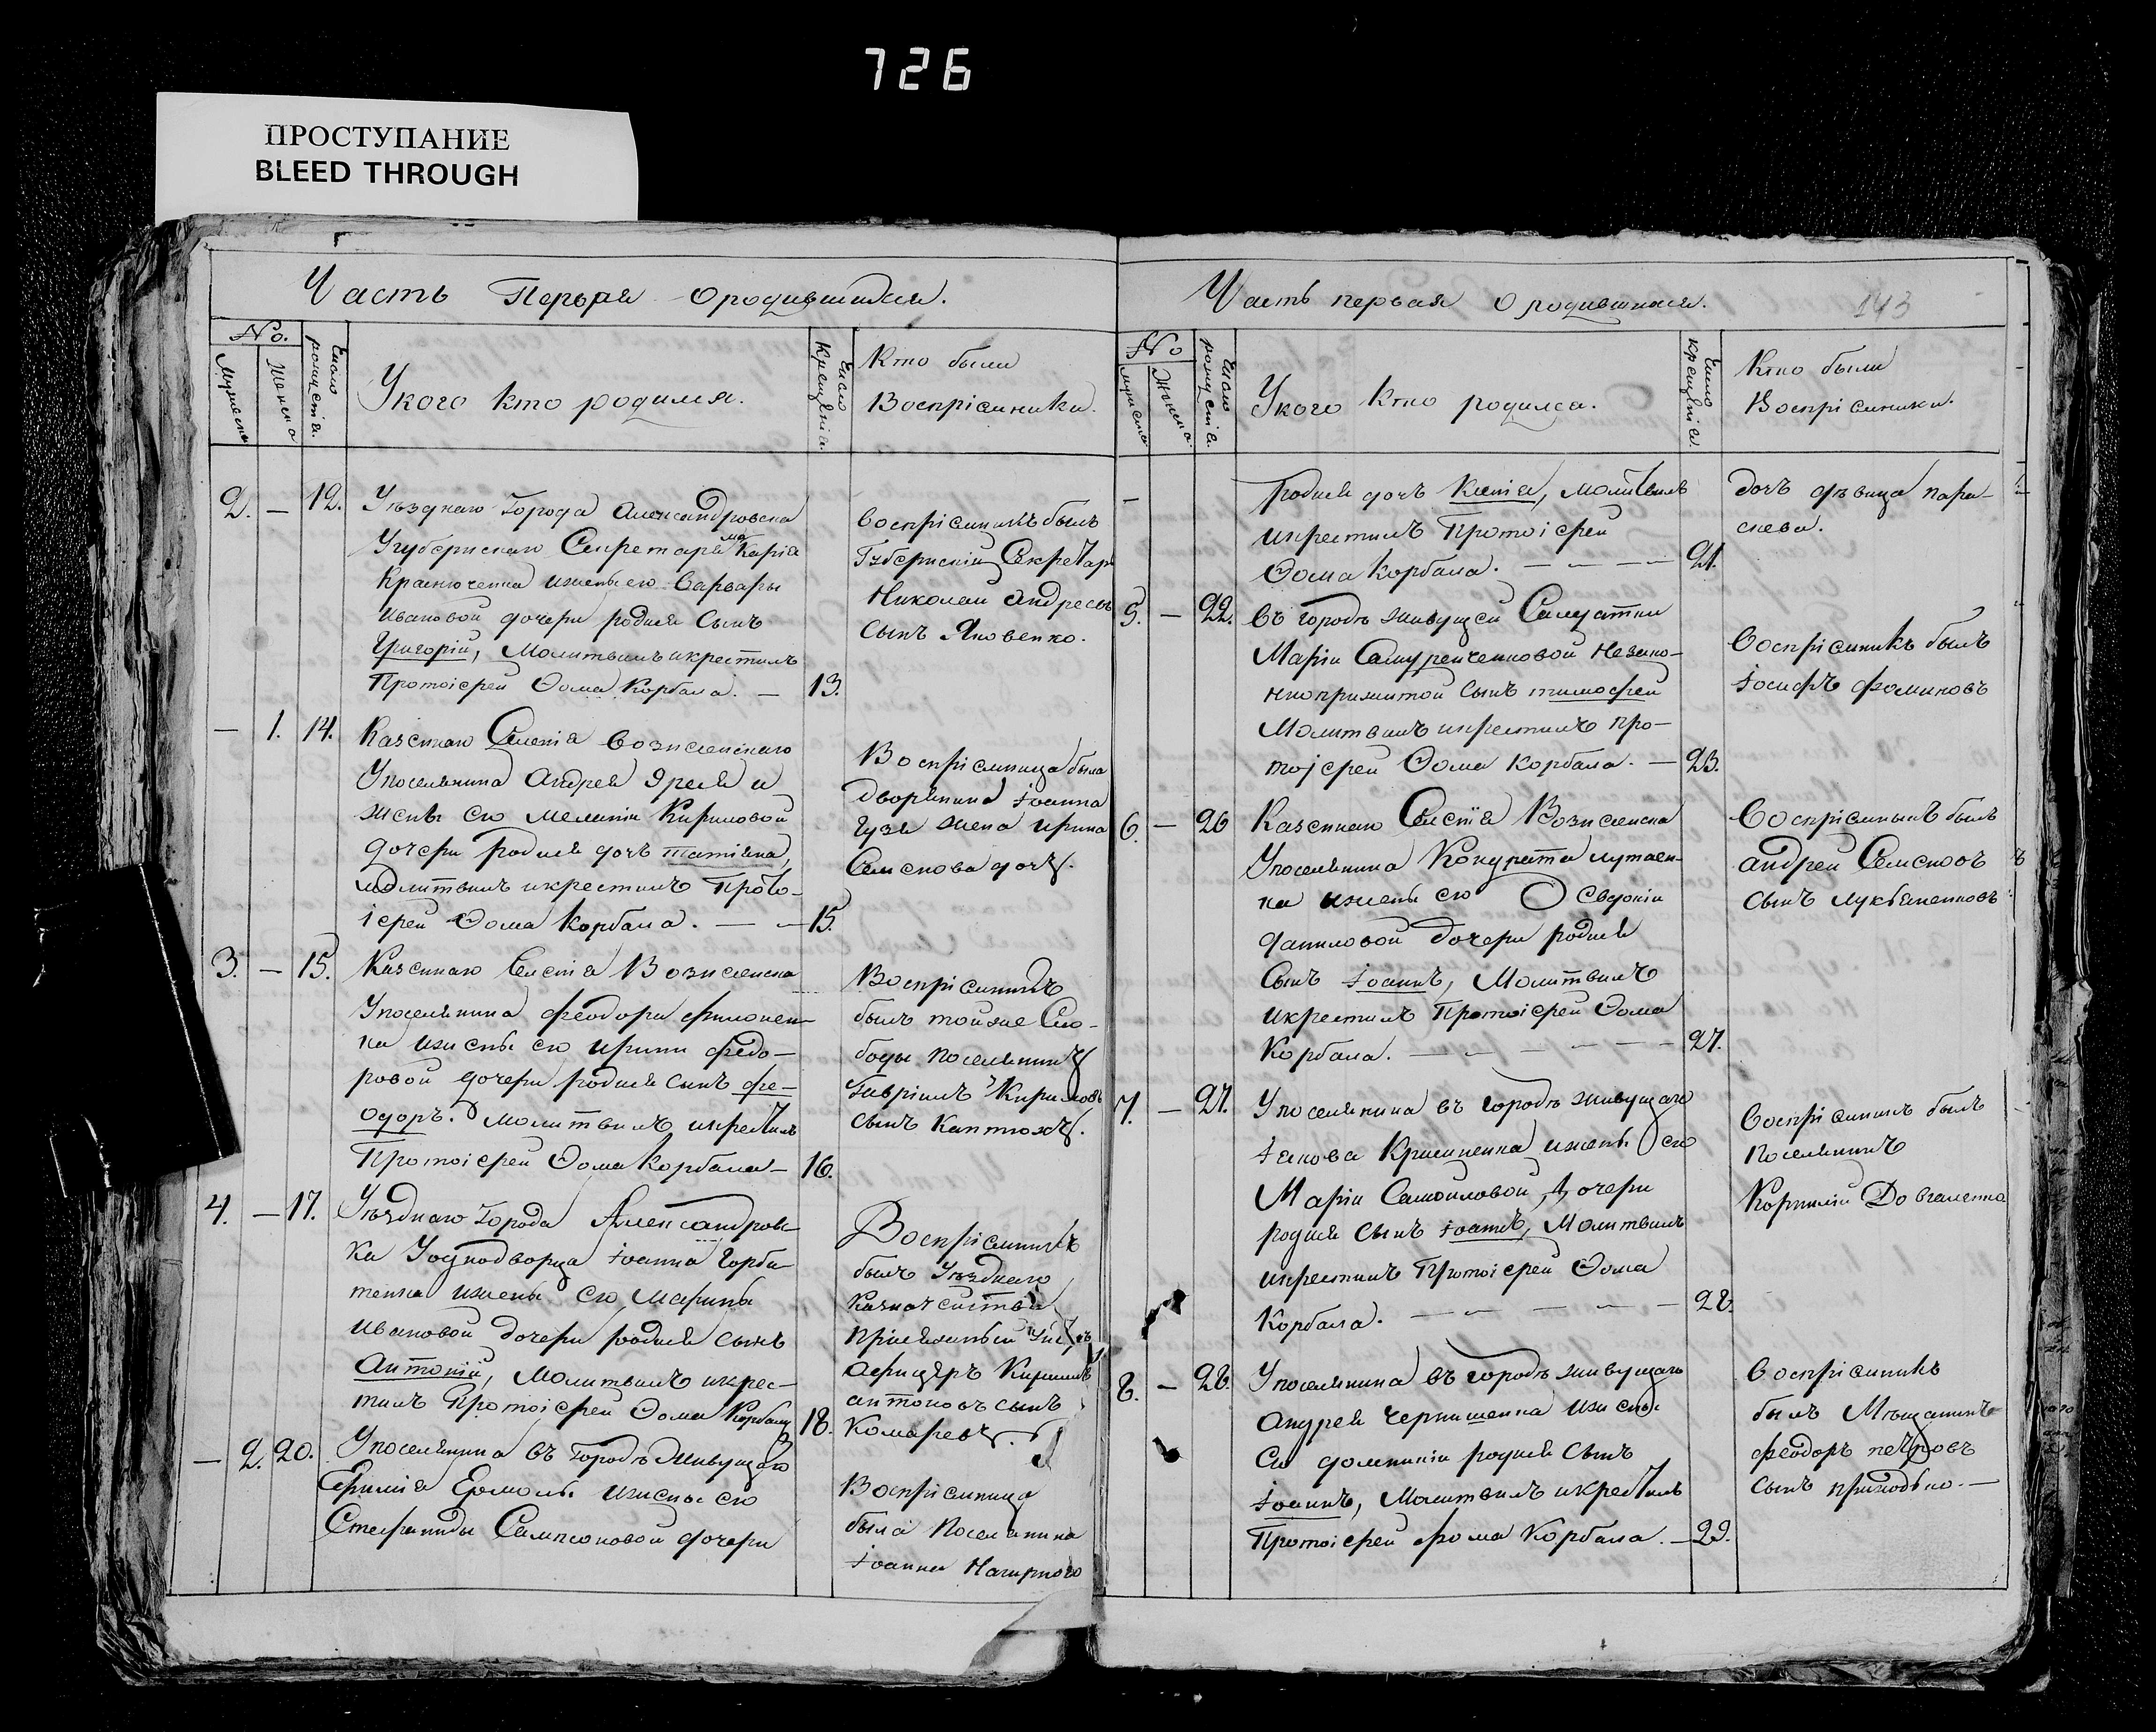 726
ПРОСТУПАНИЕ
BLEED THROUGH
Часть Первая о родившихся.
No.
Мужеска
Женска
Число рождетія.
У кого кто родился.
Число крещенія.
Кто были
Воспріемники.
2. — 12.
Уѣзднаго Города Александровска
У губернскаго Секретаря
Ивановой дочери родился Сынъ
Григорій, Молитвилъ и крестилъ
Протоіерей Ѳома Корбала. — 13.
Воспріемникъ былъ
Губернскій Секретарь
Николай Андреевъ
Сынъ Яковенко.
— 1. 14.
Казеннаго Селенія Вознесенскаго
У поселянина Андрея и
жены его Меланіи Кириловой
дочери родися дочь Татіяна,
молитвилъ и крестилъ Прото-
іерей Ѳома Корбала. — — 15.
Воспріемница была
Дворянина Іоанна
жена Ирина
Семенова дочь.
3. — 15.
Казеннаго Селенія Вознесенска
У поселянина Феодора Филонен-
ка и жены его Ирины Федо-
ровой дочери родися сынъ Фе-
одоръ. молитвилъ и крестилъ
Протоіерей Ѳома Корбала — 16.
Воспріемникъ
былъ тойже Сло-
боды поселянинъ
Гавріилъ Кириловъ
сынъ
4. — 17.
Уѣзднаго Города Александровс-
ка У однодворца Іоанна Горба-
тенка и жены его Марины
Ивановой дочери родися сынъ
Антоній, Молитвилъ и крес-
тилъ Протоіерей Ѳома Корбала 18.
Воспріемникъ
былъ Уѣзднаго
Казначейства
присяжный
Кирилъ
антоновъ сынъ
Комаревъ.
— 2. 20.
У поселянина въ городѣ живущаго
Ефимія Ермолы и жены его
Стефаниды Сампсоновой дочери
Воспріемница
была Поселянина
Іоанна Нагирного
Часть первая О родившихся.
143
No
Мужеска
Женска
Число рождетія.
У кого кто родился.
Число крещенія.
Кто были
Воспріемники.
Родися дочь Ксенія, молитвилъ
и крестилъ Протоіерей
Ѳома Корбала. — — — — 21.
дочь дѣвица пара-
скева.
5. — 22.
въ городѣ живущей Солдатки
Маріи незако-
ннорижитой Сынъ тимофей
Молитвилъ и крестилъ Про-
тоіерей Ѳома Корбала. — 23.
Воспріемникъ былъ
Іосифъ Фоминовъ
6. — 26
Казеннаго Селенія Вознесенска
У поселянина Кондрата Лутаен-
ка и жены его Ѳеодосіи
даниловой дочери родися
Сынъ Іоаннъ, Молитвилъ
и крестилъ Протоіерей Ѳома
Корбала. — — — — — — 27.
Воспріемникъ былъ
андрей Семеновъ
сынъ
7. — 27.
У поселянина въ городѣ живущаго
Іакова и жены его
Маріи Самойловой дочери
родися сынъ Іоаннъ, Молитвилъ
и крестилъ Протоіерей Ѳома
Корбала. — — — — — 28.
Воспріемникъ былъ
Поселянинъ
Корнилій Довгаленко
8. — 28.
У поселянина въ городѣ живущаго
андрея чернишенка и жены
его домникіи родися сынъ
Іоаннъ, Молитвилъ и крестилъ
Протоіерей Фома Корбала. — 29.
Воспріемникъ
былъ Мѣщанинъ
феодоръ петровъ
сынъ приходько. —